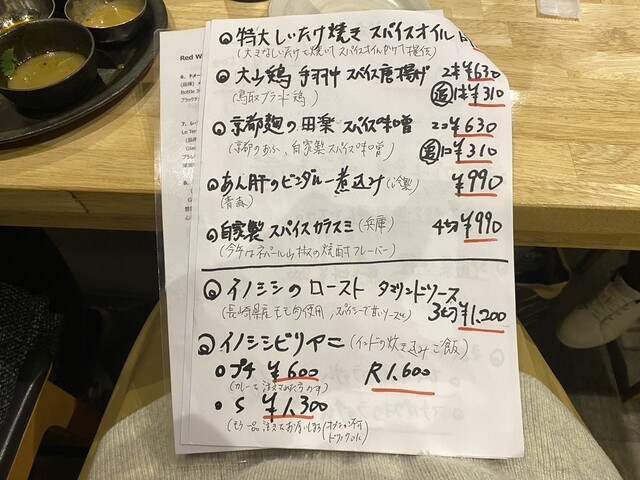 Red W
特大しいたけ焼き スパイスオイル
(大きなしいたけを焼いてスパイスオイルかけて提供)
大山鶏 手羽中 スパイス唐揚げ 2本¥630
(鳥取ブランド鶏) 追1本¥310
京都麩の田楽 スパイス味噌 2コ¥630
(京都のおふ、自家製スパイス味噌) 追1コ¥310
あん肝のビンダルー煮込み(冷製) ¥990
(青森)
自家製 スパイスカラスミ(兵庫) 4切¥990
(今年はネパール山椒の焼酎フレーバー)
イノシシのロースト タマリンドソース
(長崎県産もも肉使用、スパイシーで甘いソース) 3切¥1,200
イノシシビリヤニ(インドの炊き込みご飯)
プチ ¥600 R1,600
S ¥1,300